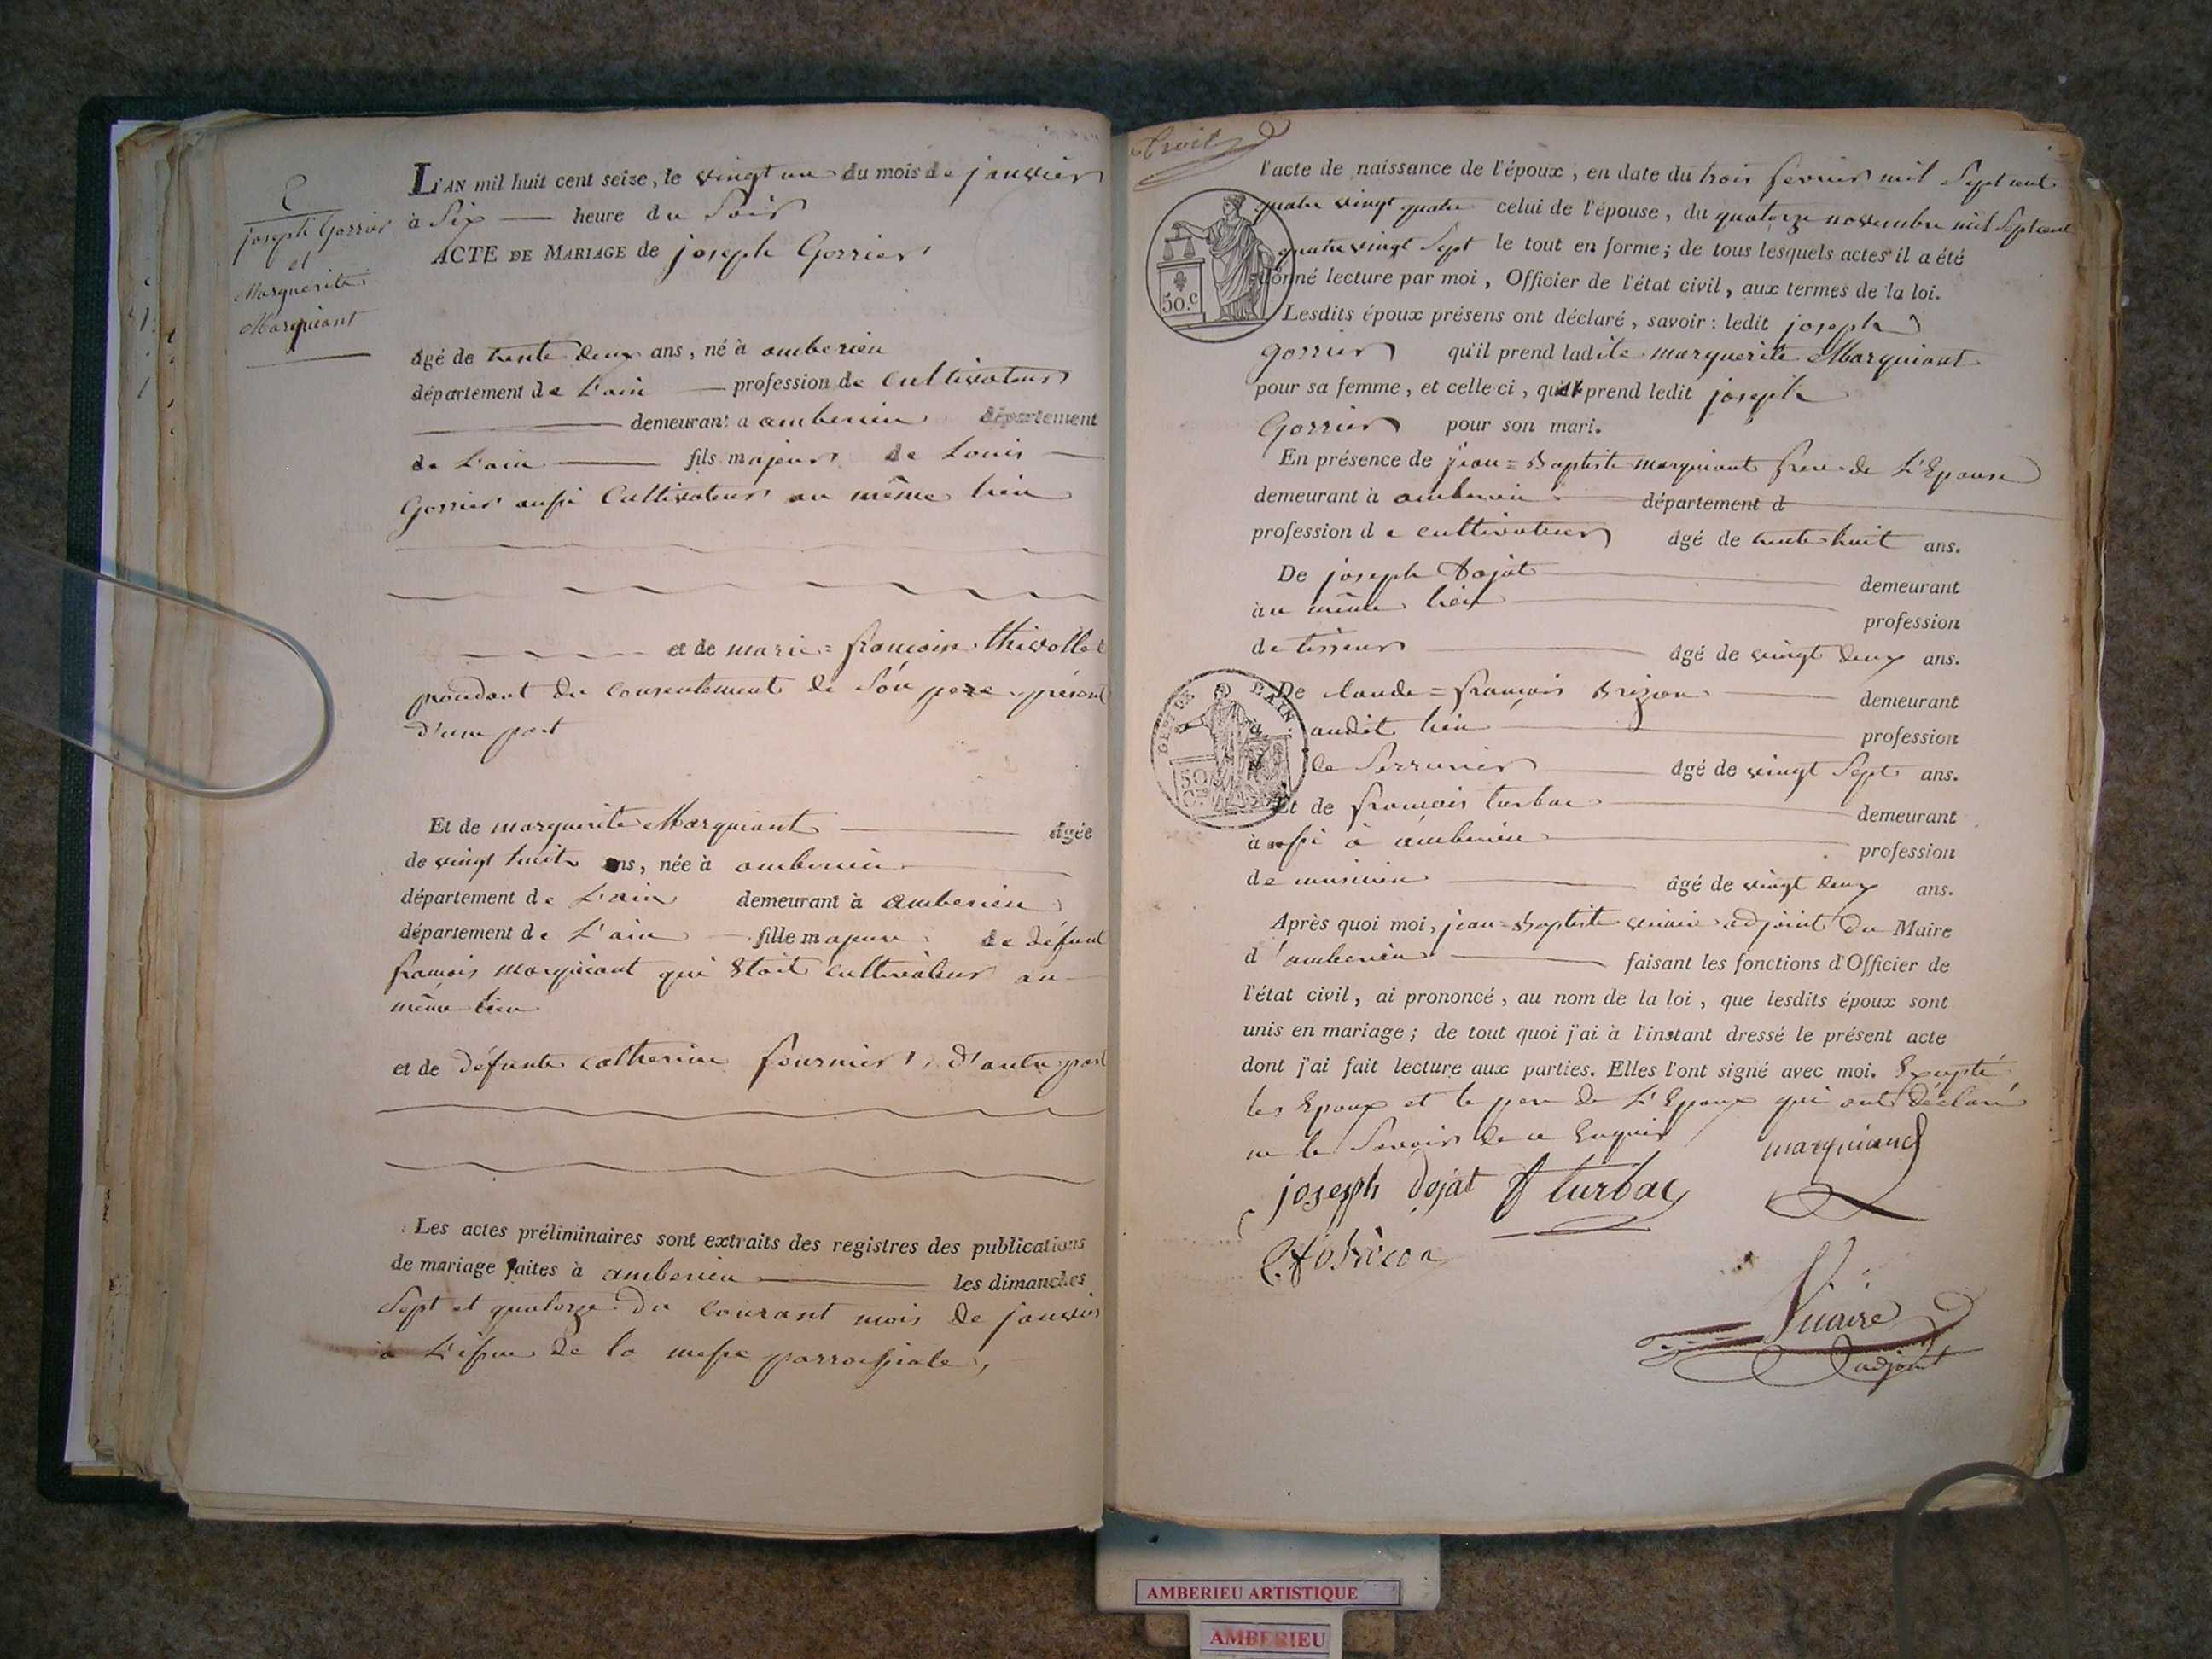 2
joseph Gorrier
et
Marguerite
Marquiant
L'AN mil huit cent seize, le vingt un du mois de janvier
à Six heure du Soir
ACTE DE MARIAGE de joseph Gorrier
âgé de trente deux ans, né à amberieu
département de L'ain profession de Cultivateur
demeurant a amberieu département
de L'ain fils majeur de Louis
Gorrier aussi Cultivateur au même lieu
et de marie=francoise thivollet
procédant du consentement de Son pere présent
d'une part
Et de marguerite Marquiant âgée
de vingt huit ans, née à amberieu
département de L'ain demeurant à amberieu
département de L'ain fille majeure de défunt
francois marquiant qui Etoit cultivateur au
même lieu
et de défunte catherine fournier, d'autre part
Les actes préliminaires sont extraits des registres des publications
de mariage faites à amberieu les dimanches
Sept et quatorze du Courant mois de janvier
à L'issue de la messe parroissiale,
trois
l'acte de naissance de l'époux, en date du trois fevrier mil Sept cent
quatre vingt quatre celui de l'épouse, du quatorze novembre mil Sept cent
quatre vingt Sept le tout en forme; de tous lesquels actes il a été
donné lecture par moi, Officier de l'état civil, aux termes de la loi.
50.c
Lesdits époux présens ont déclaré, savoir: ledit joseph
gorrier qu'il prend ladite marguerite Marquiant
pour sa femme, et celle-ci, qu'elle prend ledit joseph
Gorrier pour son mari.
En présence de jean=Baptiste marquiant frere de L'Epouse
demeurant à amberieu département d
profession de cultivateur âgé de trente huit ans.
De joseph Dojat demeurant
au même lieu profession
de tisseur âgé de vingt deux ans.
De claude=françois Brizon demeurant
audit lieu profession
de Serrurier âgé de vingt Sept ans.
Et de francois turbac demeurant
aussi à amberieu profession
de musicien âgé de vingt deux ans.
Après quoi moi, jean=Baptiste vuaire adjoint du Maire
d'amberieu faisant les fonctions d'Officier de
l'état civil, ai prononcé, au nom de la loi, que lesdits époux sont
unis en mariage; de tout quoi j'ai à l'instant dressé le présent acte
dont j'ai fait lecture aux parties. Elles l'ont signé avec moi. Excepté
les Epoux et le pere de L'Epoux qui ont déclaré
ne le Savoir de ce Enquis marquiand
joseph dojat f turbac
Vuaire
adjoint
AMBERIEU ARTISTIQUE
AMBERIEU